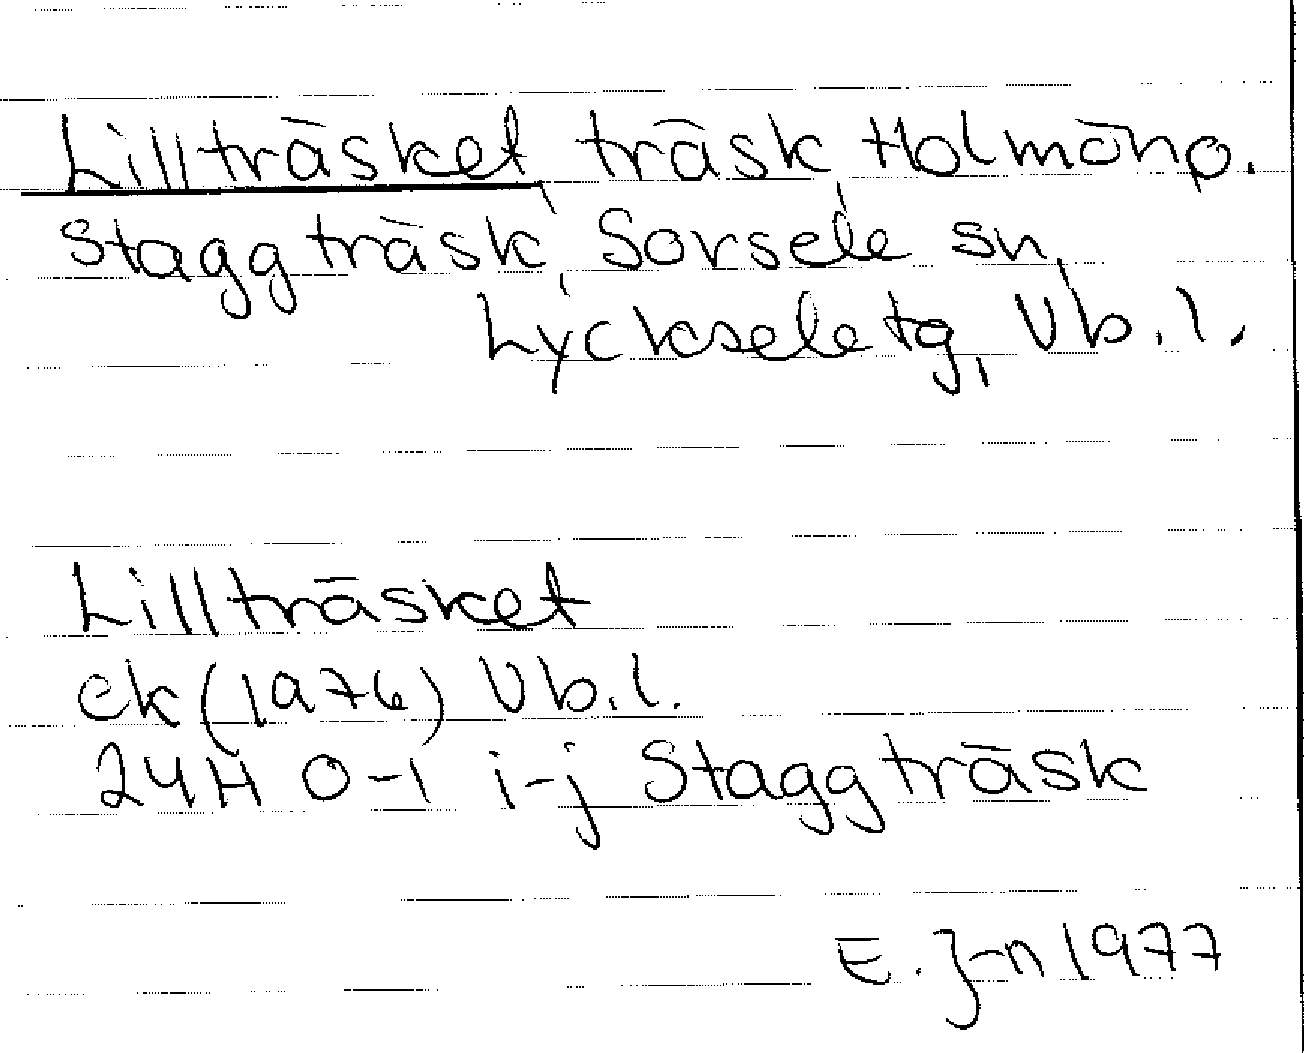 Lillträsket, träsk, Holmön o.
Staggträsk, Sorsele sn,
Lyckseletg, Vb.l.
Lillträsket
ek (1976) Vb.l.
24H 0-1 i-j Staggträsk
E. J-n 1977